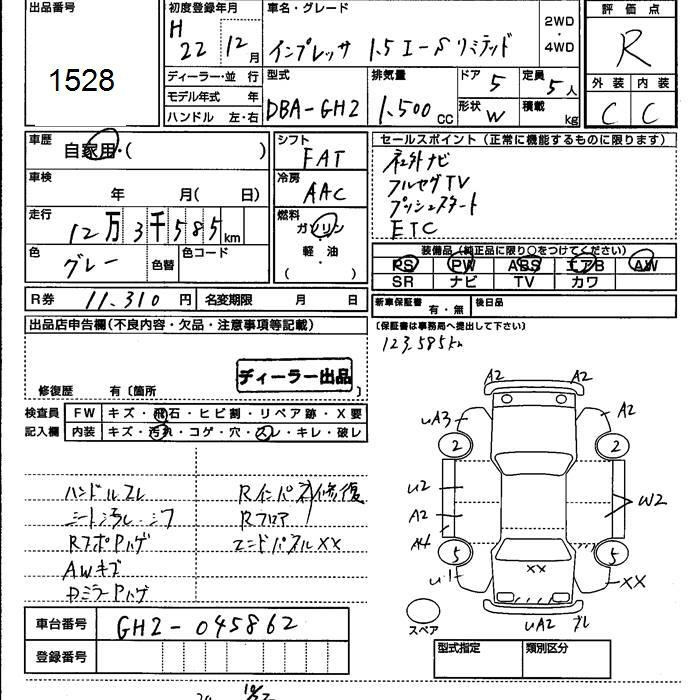 出品番号
1528
初度登録年月
H 22 12月
車名・グレード
インプレッサ 1.5 I-S リミテッド
2WD
・
4WD
評価点
R
ディーラー・並 行
モデル年式 年
ハンドル 左・右
型式
DBA-GH2
排気量
1,500 CC
ドア 5
形状 W
定員 5人
積載 kg
外装 内装
C C
車歴
自家用・( )
シフト
FAT
車検
年 月( 日)
冷房
AAC
走行
12万3千585km
燃料
ガソリン
・
軽・油
( )
色
グレー
色替
色コード
R券 11,310 円
名変期限 月 日
セールスポイント(正常に機能するものに限ります)
社外ナビ
フルセグTV
プッシュスタート
ETC
装備品(純正品に限り○をつけてください)
PS PW ABS エアB AW
SR ナビ TV カワ
新車保証書 有・無
後日品
(保証書は事務局へ提出して下さい)
123,585km
出品店申告欄(不良内容・欠品・注意事項等記載)
ディーラー出品
修復歴 有〔箇所 〕
検査員
記入欄
FW キズ・飛石・ヒビ割・リペア跡・X要
内装 キズ・汚れ・コゲ・穴・スレ・キレ・破レ
ハンドルスレ
シート汚レ・シワ
RステポPハゲ
AWキズ
DミラーPハゲ
Rインパネ 修復
Rフロア
エンドパネルXX
A2 A2
uA3 A2
2 2
u2
A2
W2
A4
5 5
u1 XX
XX
uA2
スペア
車台番号 GH2-045862
登録番号
型式指定 類別区分